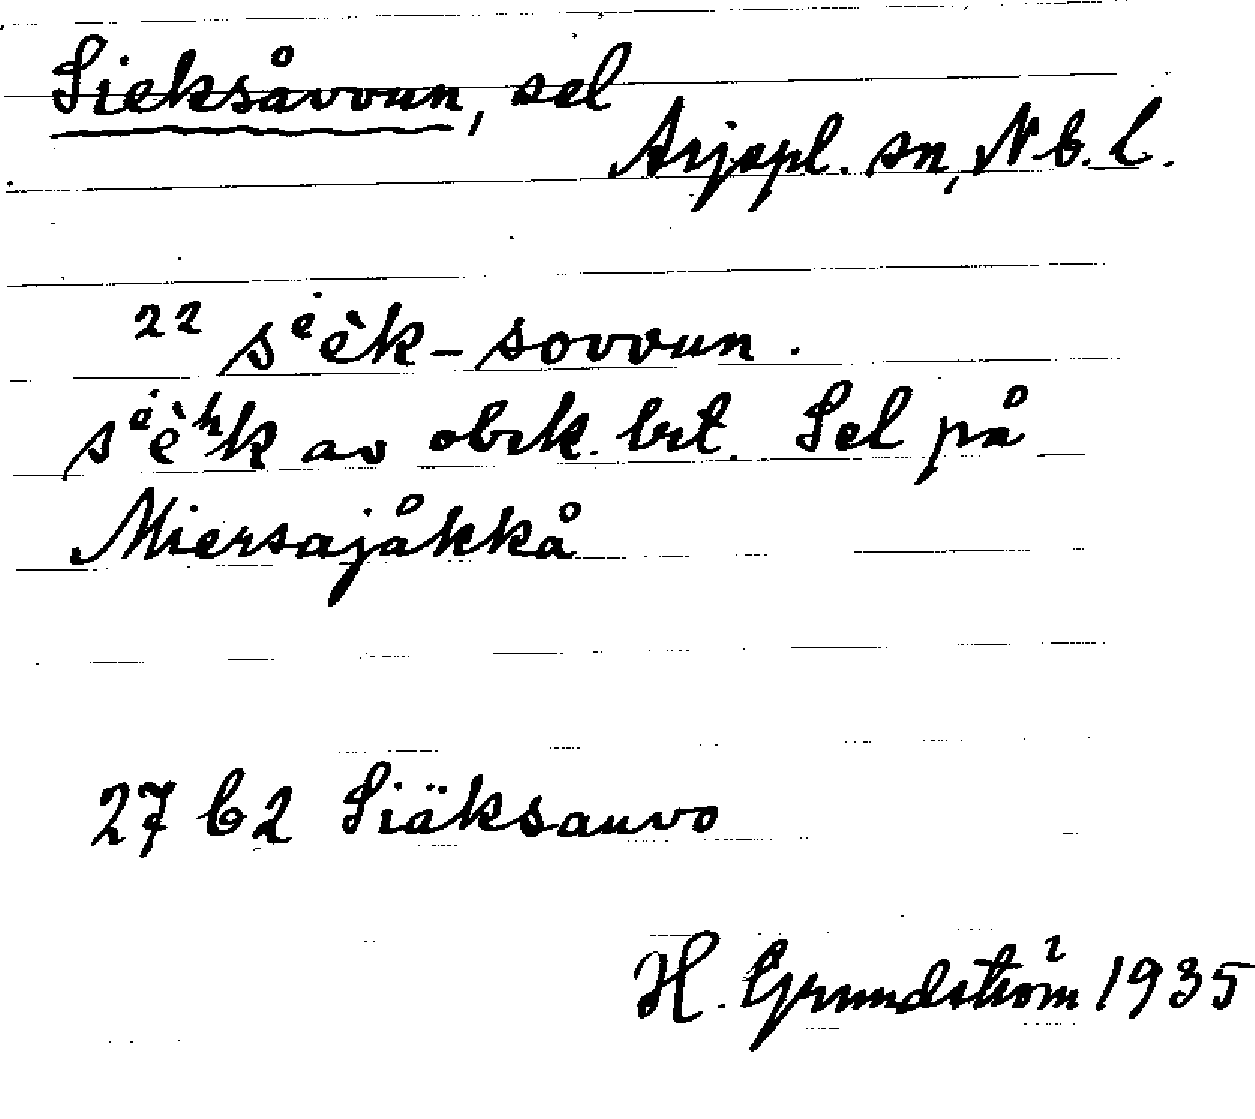 Sieksåvvun, sel
Arjepl. sn, Nb. L.
22 sėèk-sovvun.
sėèʰk av obek. bet. Sel på
Miersajåkkå
27 C2 Siäksauvo
H. Grundström 1935